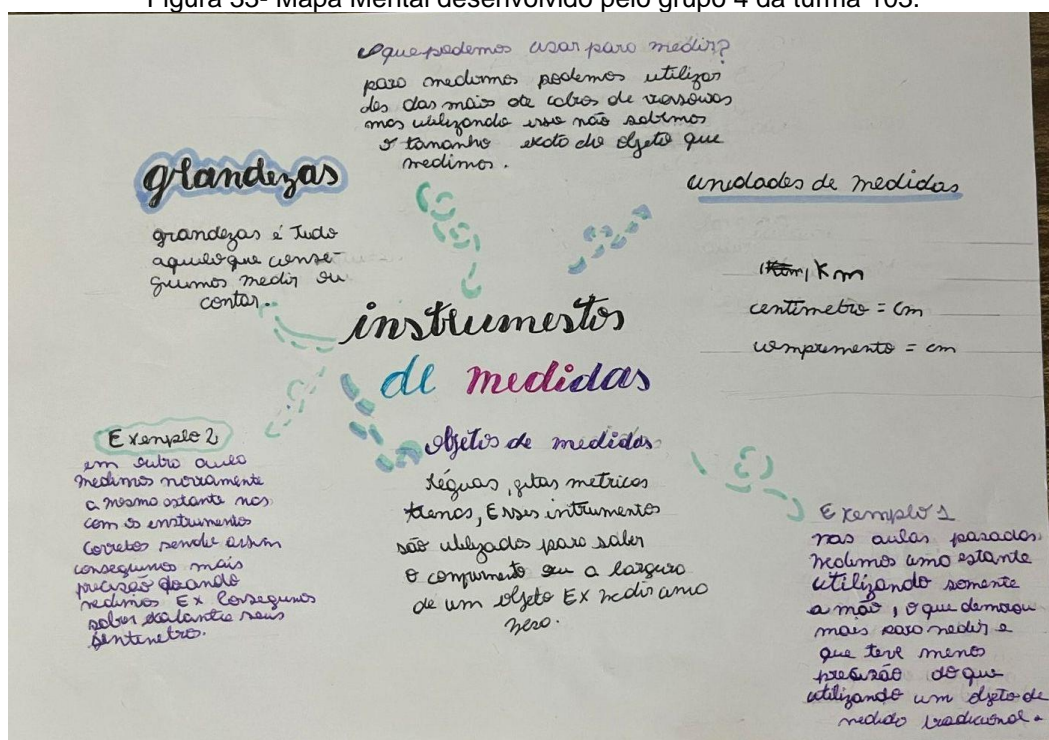 Figura 33- Mapa Mental desenvolvido pelo grupo 4 da turma 103.
O que podemos usar para medir?
para medirmos podemos utilizar
des das mãos ate cabos de vassouras
mas utilizando isso não sabemos
o tamanho exato do objeto que
medimos.
grandezas
grandezas é tudo
aquilo que conse-
guimos medir ou
contar.
unidades de medidas
Km
centimetro = cm
comprimento = cm
instrumentos
de medidas
Exemplo 2
em outra aula
medimos novamente
a mesma estante mas
com os enstrumentos
corretos sendo assim
conseguimos mais
precisão quando
medimos Ex Consegimos
saber exalante seus
sentimetros.
objetos de medidas
réguas, fitas metricas
trenas, Esses intrumentos
são utilizados para saber
o comprimento ou a largura
de um objeto Ex medir uma
mesa.
Exemplo 1
nas aulas pasadas
medimos uma estante
utilizando somente
a mão, o que demorou
mais para medir e
que teve menos
precisão do que
utilizando um objeto de
medida tradicional.